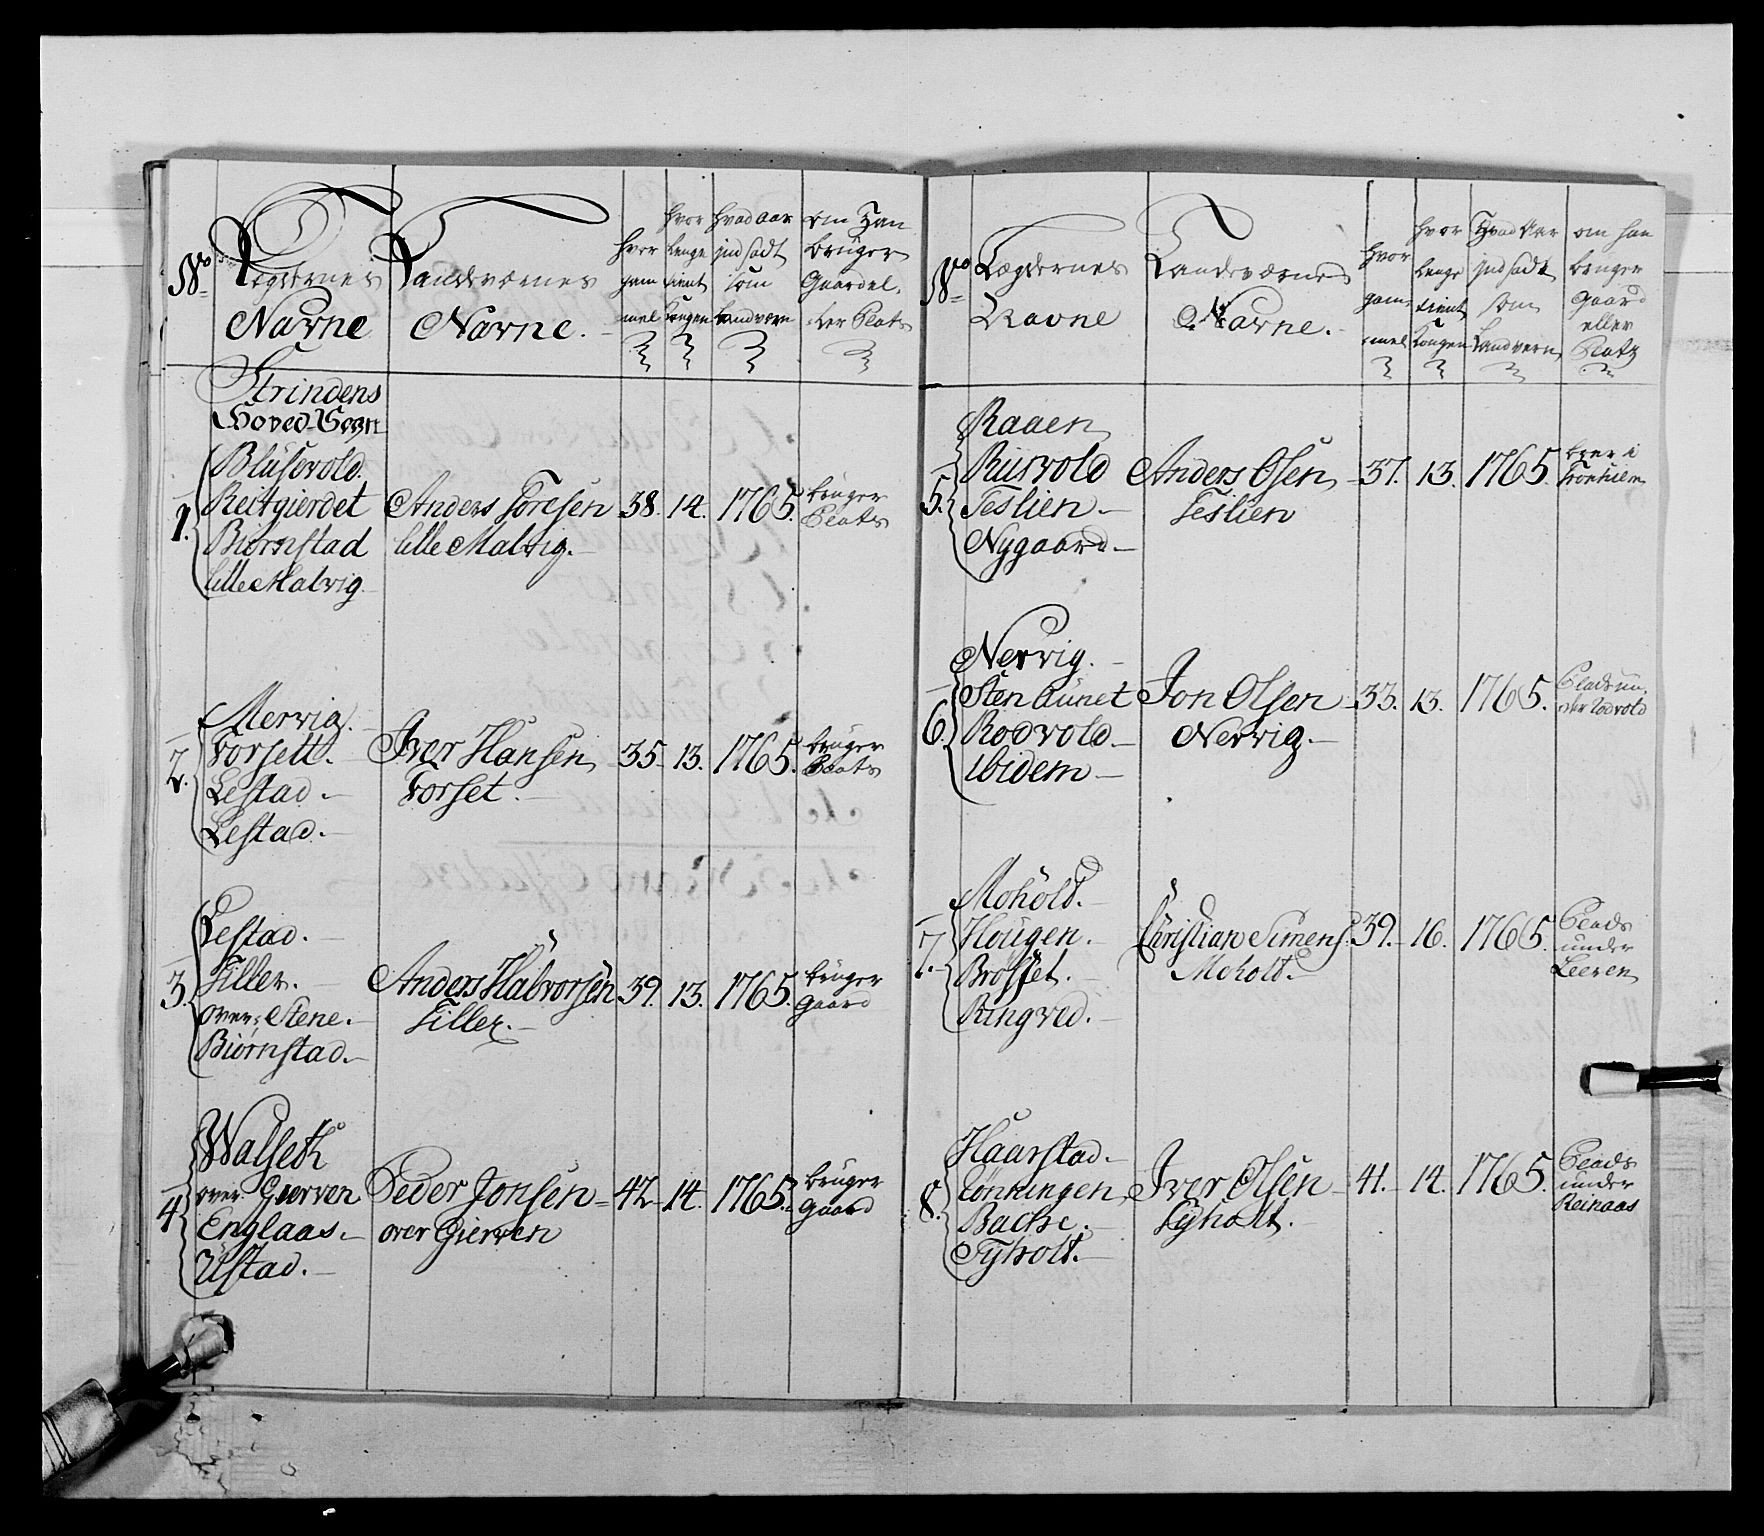 No
Lægdernes
Navne
Landværnes
Navne.
hvor
gam
mel
hvor
lenge
tient
Kongen
hvad aar
ind sadt
som
Landværn
om Han
bruger
Gaard el.
ler Plats
Strindens
Hoved-Sogn
1.
Blusevold.
Reitgierdet
Biørnstad
lille Malvig
Anders Toresen
lille Malvig.
38.
14.
1765.
bruger
Plats
2.
Mervig.
Forsett.
Lestad.
Lestad.
Iver Hansen
Forset.
35
13.
1765.
bruger
Plats
3.
Lestad.
Tiller.
over Stene.
Biørnstad.
Anders Halvorsen
Tiller.
39.
13.
1765.
bruger
gaard
4
Walseth
over Gierven
Englaas.
Ustad.
Peder Jonsen
over Gierven
42
14.
1765.
bruger
gaard
No
Lægdernes
Navne
Landeværnes
Navne.
hvor
gam
mel
hvor
lenge
tient
Kongen
Hvad Aar
ind sadt
som
Landvern
om han
bruger
Gaard
eller
Platz
5.
Raaen
Risvold
Teslien.
Nygaard.
Anders Olsen
Teslien
37.
13.
1765.
boer i
6.
Nervig.
Sten Aunet
Rodvold
ibidem
Jon Olsen
Nervig.
33.
13.
1765.
Plads un
der Rodvold
7.
Moholt.
Hougen.
Brøsset.
Ringved.
Christian Simens.
Moholt.
39.
16.
1765.
Plads
under
Leeren
8.
Haarstad.
Lønningen
Bache.
Tyholt.
Iver Olsen
Tyholt.
41.
14.
1765.
Plads
under
Reinaas